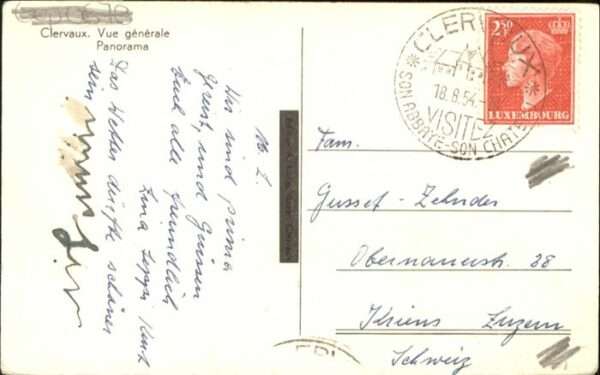 Clervaux. Vue générale
Panorama
CLERVAUX
18.8.54
VISITEZ
SON ABBAYE-SON CHATEAU
2F50
LUXEMBOURG
Wir sind prima
gereist, und Grüssen
Euch alle freundlich
Das Wetter dürfte schöner
sein
Fam.
Gusset-Zehnder
Obernauerstr. 38
Kriens Luzern
Schweiz